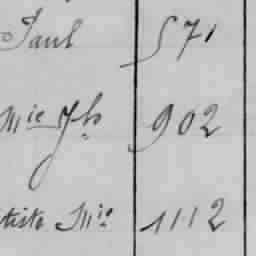 Paul 571
Mie Jh 902
tiste Mie 1112